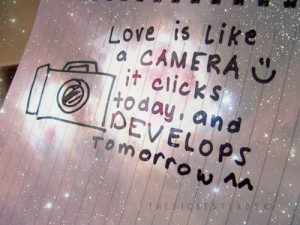 Love is like
a CAMERA
it clicks
today, and
DEVELOPS
Tomorrow ^^